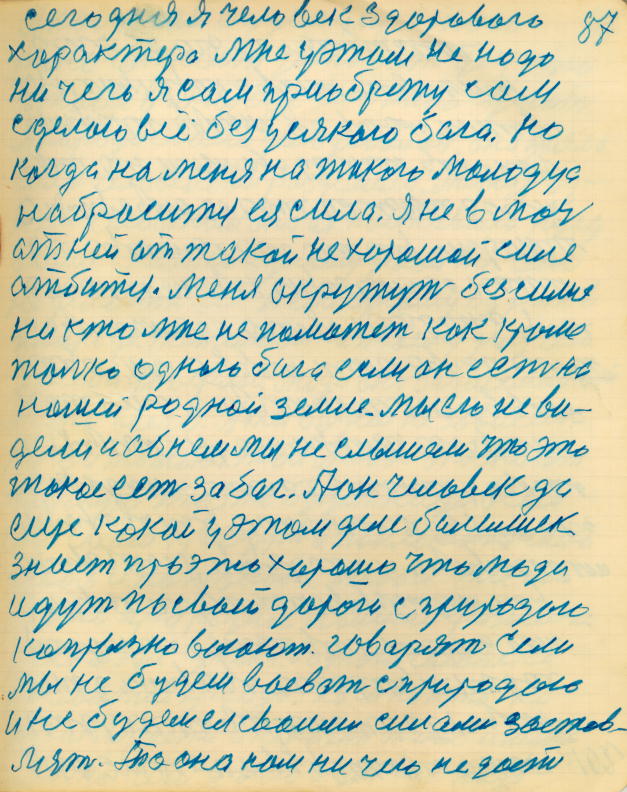 87
сегодня я человек здорового
характера мне уэтом не надо
ни чего я сам приобрету сам
сделою всё без усякого бага. Но
когда на меня на такого молодца
набросится ся сила. Я не в моч
атней от такой не хорошой силе
атбится. Меня окружут безсилие
ни кто мне не поможет как кроме
толко одного бага если он есть на
нашей родной земле. Мы его не ви-
дели и об нем мы не слышали что это
токое ест за баг. А он человек да
еще кокой у этом деле балешиск
знает про это хорошо что люди
идут по своей дороги с природою
капризно воюют. говарят если
мы не будем воеват с природою
и не будем ея своими силами застов-
лят. То она нам ни чего не даст